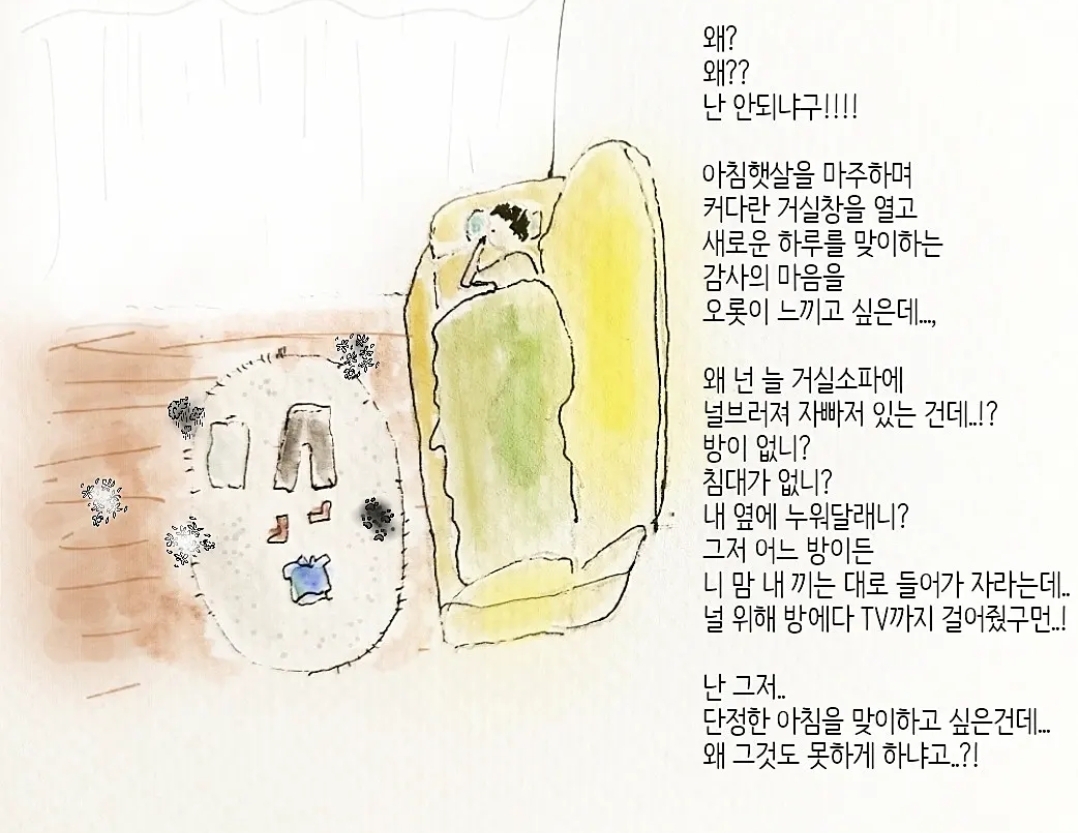 왜?
왜??
난 안되냐구!!!!
아침햇살을 마주하며
커다란 거실창을 열고
새로운 하루를 맞이하는
감사의 마음을
오롯이 느끼고 싶은데...,
왜 넌 늘 거실소파에
널브러져 자빠저 있는 건데..!?
방이 없니?
침대가 없니?
내 옆에 누워달래니?
그저 어느 방이든
니 맘 내 끼는 대로 들어가 자라는데..
널 위해 방에다 TV까지 걸어줬구먼..!
난 그저..
단정한 아침을 맞이하고 싶은건데...
왜 그것도 못하게 하냐고..?!